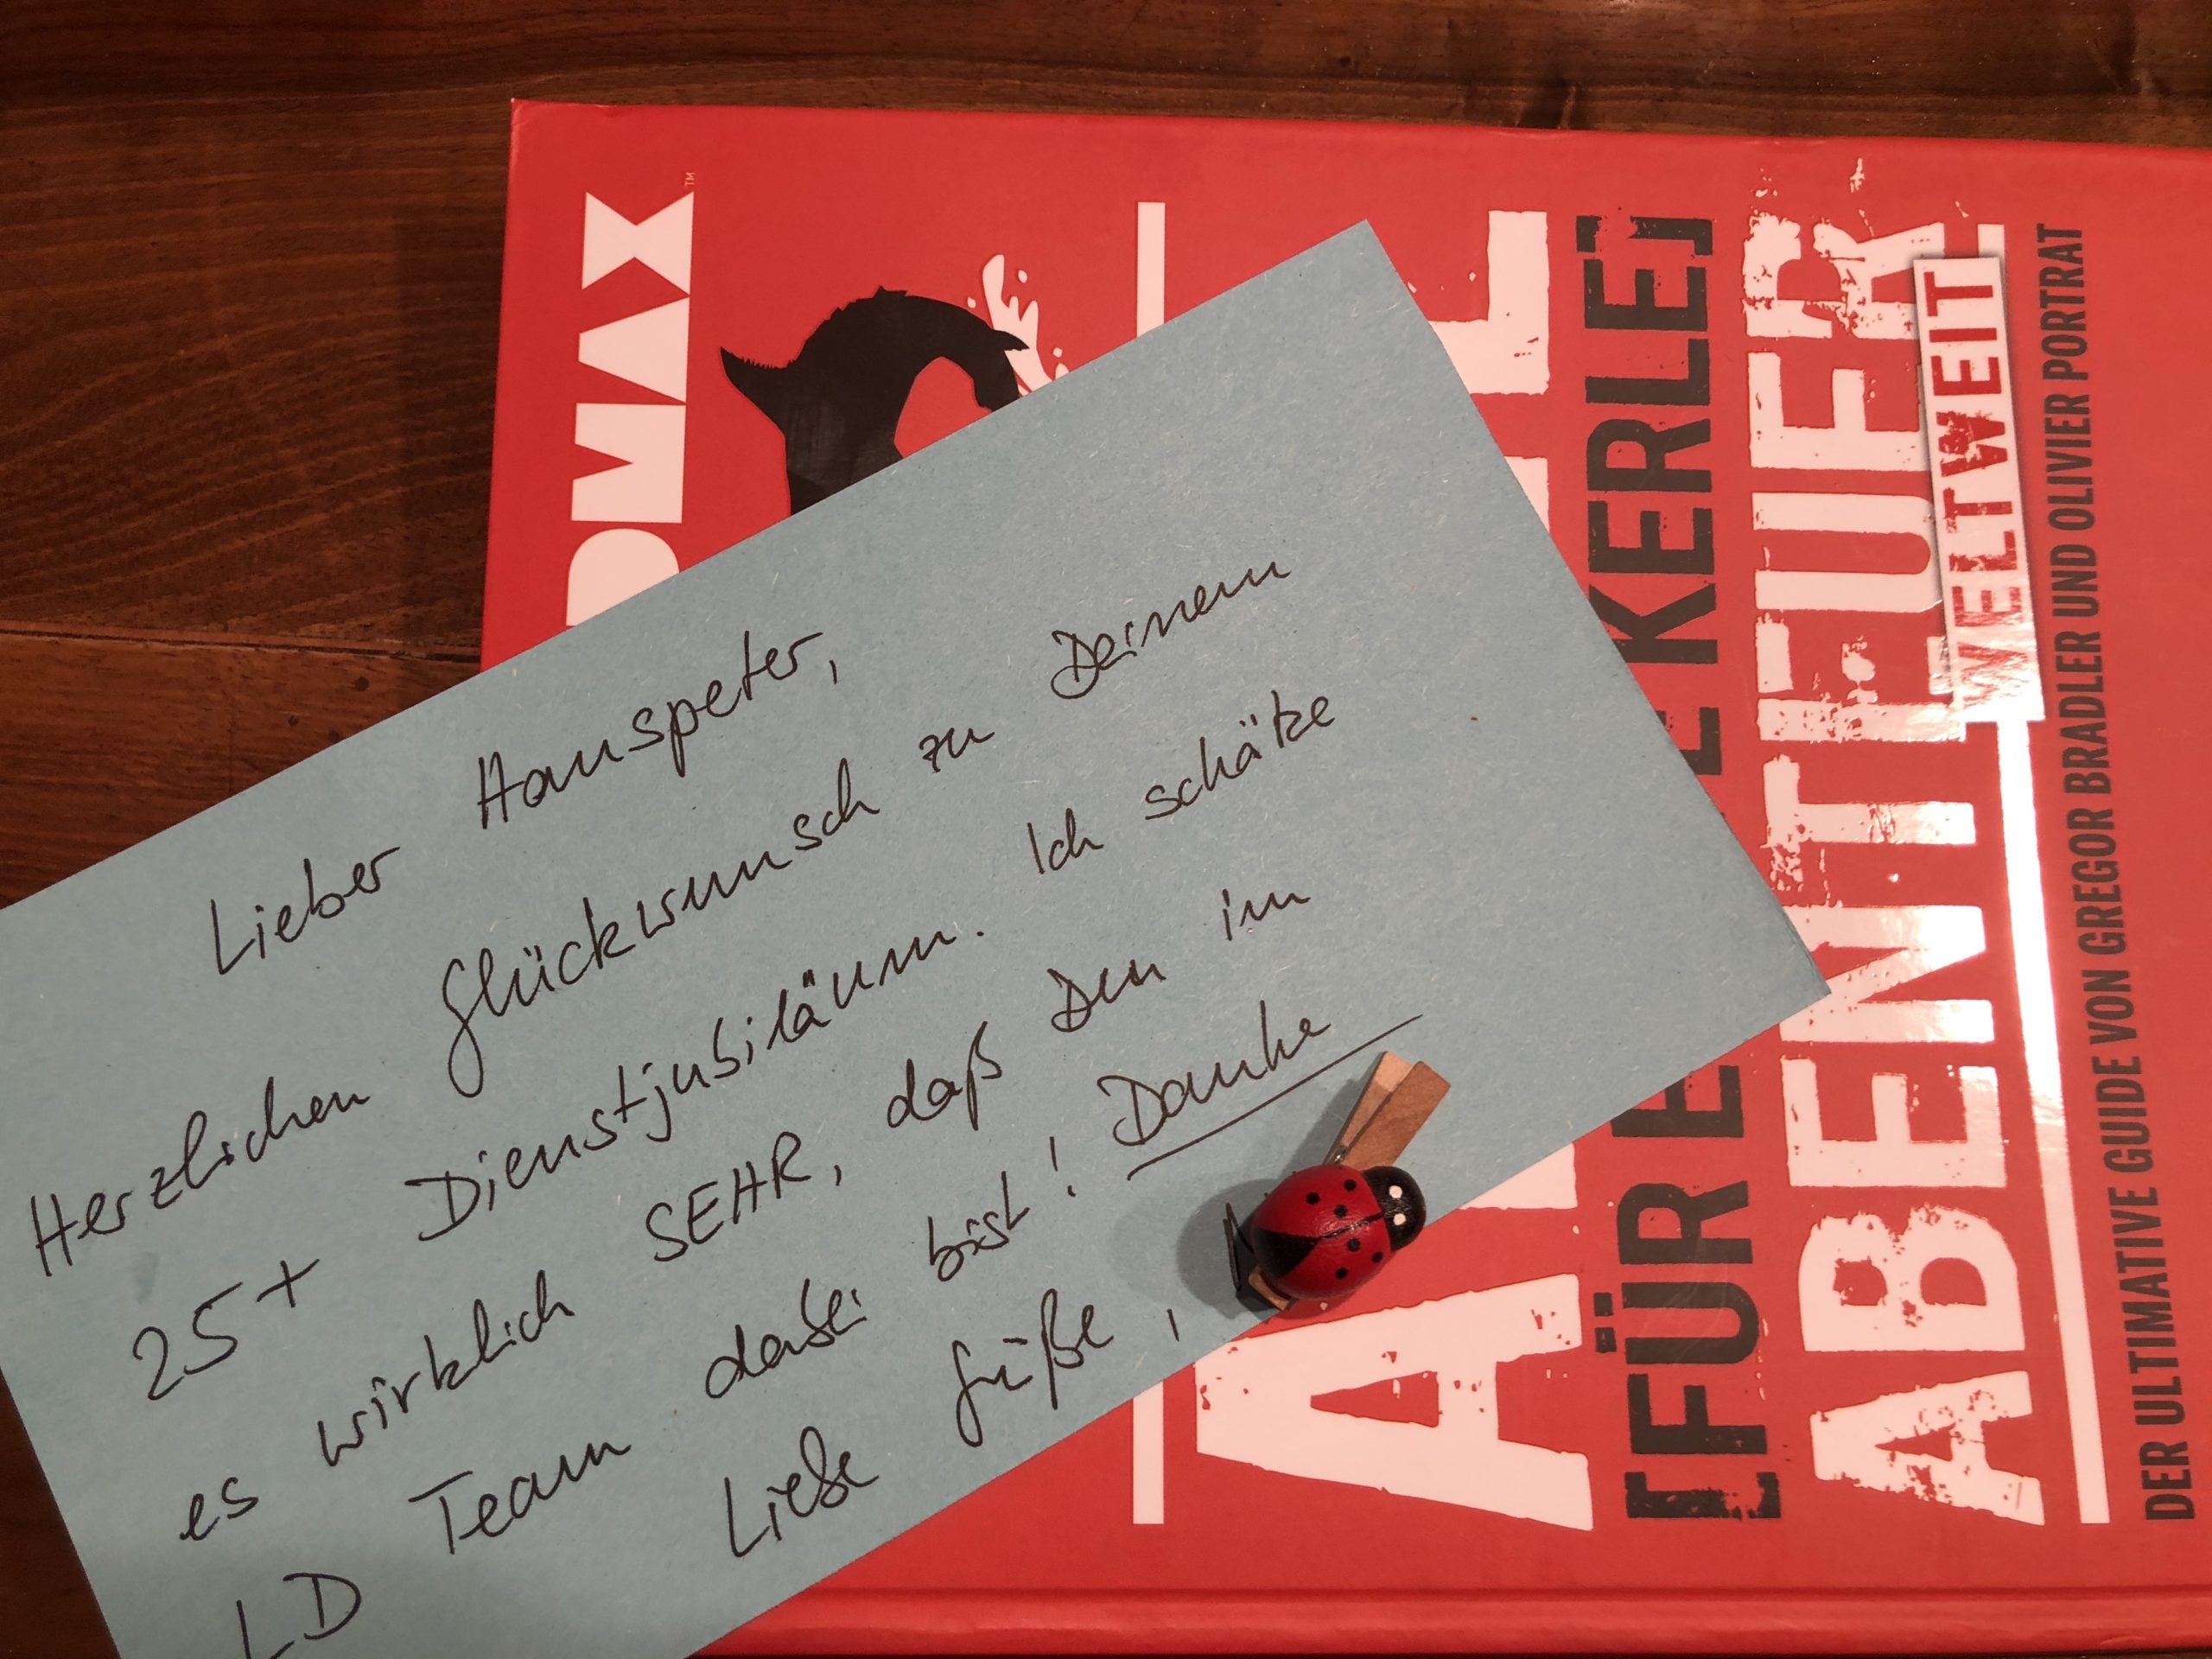 Lieber Hanspeter,
Herzlichen Glückwunsch zu Deinem
25+ Dienstjubiläum. Ich schätze
es wirklich SEHR, daß Du im
LD Team dabei bist! Danke
Liebe Grüße,
DMAX™
[FÜR E KERLE]
ABENTEUER
WELTWEIT
DER ULTIMATIVE GUIDE VON GREGOR BRADLER UND OLIVIER PORTRAT